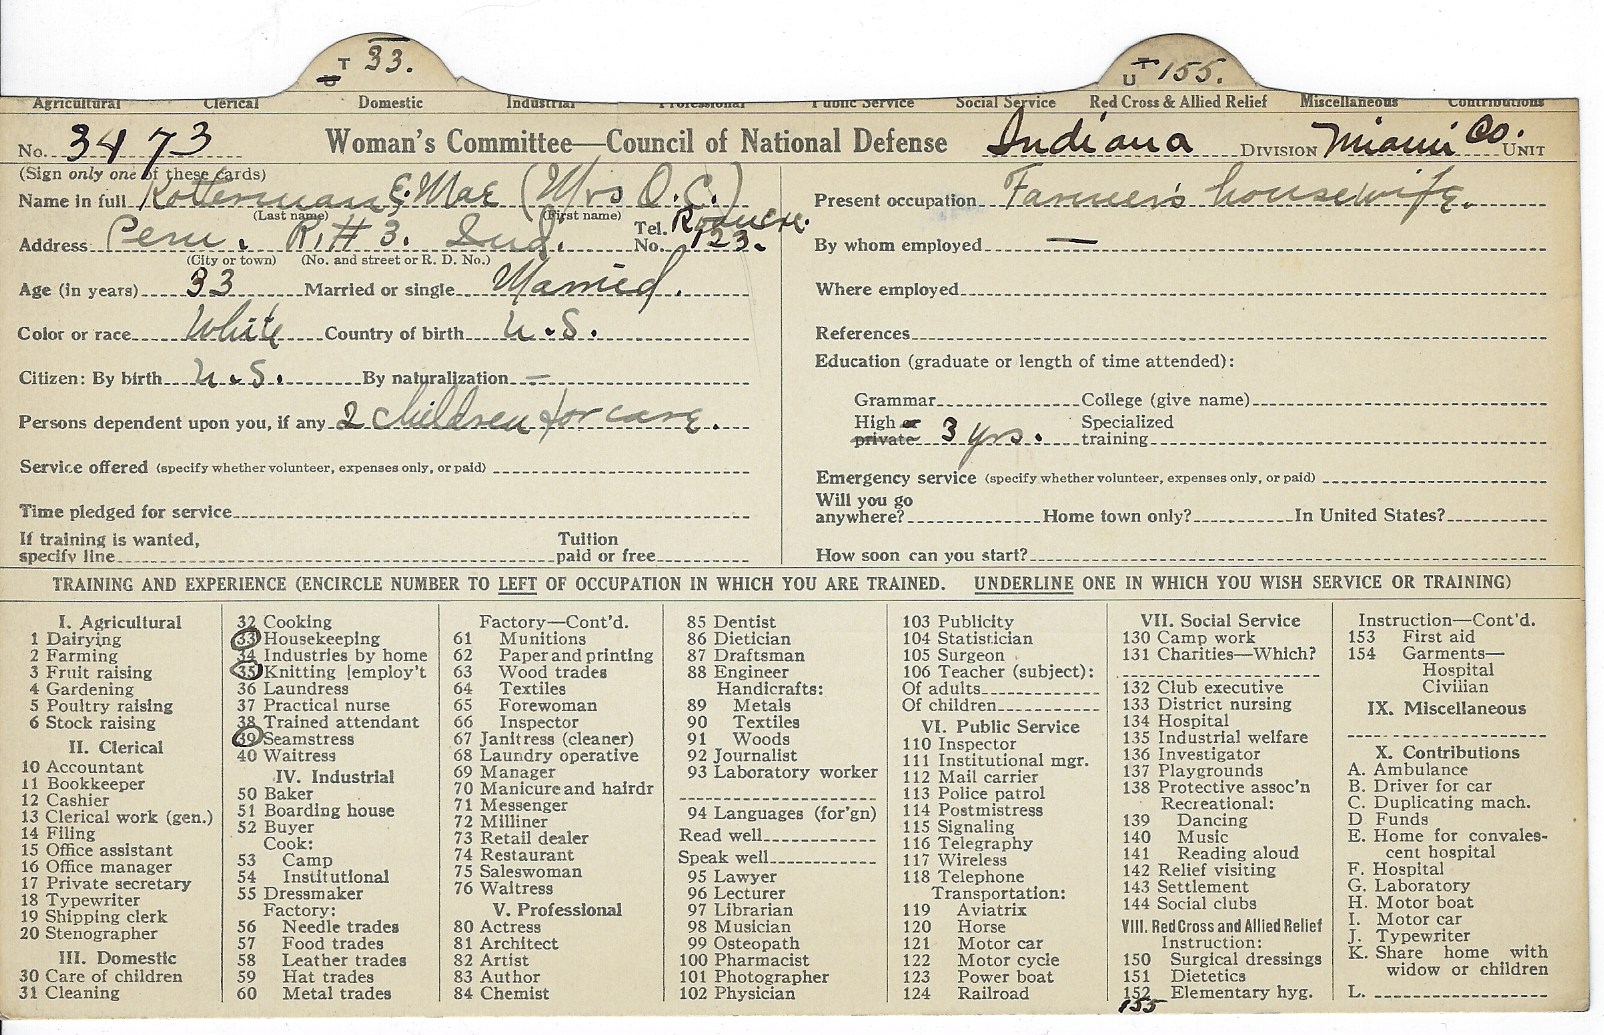 T 33.
U
T 155.
U
Agricultural Clerical Domestic Industrial Professional Public Service Social Service Red Cross & Allied Relief Miscellaneous Contributions
No. 3473 Woman's Committee—Council of National Defense Indiana DIVISION Miami Co. UNIT
(Sign only one of these cards)
Name in full Kotterman, E. Mae (Mrs O.C.)
(Last name) (First name)
Address Peru, R.#3. Ind. Tel. No. 123.
(City or town) (No. and street or R. D. No.)
Age (in years) 33 Married or single Married.
Color or race White Country of birth U.S.
Citizen: By birth U.S. By naturalization —
Persons dependent upon you, if any 2 children for care.
Service offered (specify whether volunteer, expenses only, or paid)
Time pledged for service
If training is wanted, specify line Tuition paid or free
Present occupation Farmer's housewife.
By whom employed —
Where employed
References
Education (graduate or length of time attended):
Grammar College (give name)
High or private 3 yrs. Specialized training
Emergency service (specify whether volunteer, expenses only, or paid)
Will you go anywhere? Home town only? In United States?
How soon can you start?
TRAINING AND EXPERIENCE (ENCIRCLE NUMBER TO LEFT OF OCCUPATION IN WHICH YOU ARE TRAINED. UNDERLINE ONE IN WHICH YOU WISH SERVICE OR TRAINING)
I. Agricultural
1 Dairying
2 Farming
3 Fruit raising
4 Gardening
5 Poultry raising
6 Stock raising
II. Clerical
10 Accountant
11 Bookkeeper
12 Cashier
13 Clerical work (gen.)
14 Filing
15 Office assistant
16 Office manager
17 Private secretary
18 Typewriter
19 Shipping clerk
20 Stenographer
III. Domestic
30 Care of children
31 Cleaning
32 Cooking
33 Housekeeping
34 Industries by home
35 Knitting [employ't
36 Laundress
37 Practical nurse
38 Trained attendant
39 Seamstress
40 Waitress
IV. Industrial
50 Baker
51 Boarding house
52 Buyer
Cook:
53 Camp
54 Institutional
55 Dressmaker
Factory:
56 Needle trades
57 Food trades
58 Leather trades
59 Hat trades
60 Metal trades
Factory—Cont'd.
61 Munitions
62 Paper and printing
63 Wood trades
64 Textiles
65 Forewoman
66 Inspector
67 Janitress (cleaner)
68 Laundry operative
69 Manager
70 Manicure and hairdr
71 Messenger
72 Milliner
73 Retail dealer
74 Restaurant
75 Saleswoman
76 Waitress
V. Professional
80 Actress
81 Architect
82 Artist
83 Author
84 Chemist
85 Dentist
86 Dietician
87 Draftsman
88 Engineer
Handicrafts:
89 Metals
90 Textiles
91 Woods
92 Journalist
93 Laboratory worker
94 Languages (for'gn)
Read well
Speak well
95 Lawyer
96 Lecturer
97 Librarian
98 Musician
99 Osteopath
100 Pharmacist
101 Photographer
102 Physician
103 Publicity
104 Statistician
105 Surgeon
106 Teacher (subject):
Of adults
Of children
VI. Public Service
110 Inspector
111 Institutional mgr.
112 Mail carrier
113 Police patrol
114 Postmistress
115 Signaling
116 Telegraphy
117 Wireless
118 Telephone
Transportation:
119 Aviatrix
120 Horse
121 Motor car
122 Motor cycle
123 Power boat
124 Railroad
VII. Social Service
130 Camp work
131 Charities—Which?
132 Club executive
133 District nursing
134 Hospital
135 Industrial welfare
136 Investigator
137 Playgrounds
138 Protective assoc'n
Recreational:
139 Dancing
140 Music
141 Reading aloud
142 Relief visiting
143 Settlement
144 Social clubs
VIII. Red Cross and Allied Relief
Instruction:
150 Surgical dressings
151 Dietetics
152 Elementary hyg.
155
Instruction—Cont'd.
153 First aid
154 Garments—
Hospital
Civilian
IX. Miscellaneous
X. Contributions
A. Ambulance
B. Driver for car
C. Duplicating mach.
D Funds
E. Home for convales-
cent hospital
F. Hospital
G. Laboratory
H. Motor boat
I. Motor car
J. Typewriter
K. Share home with
widow or children
L.